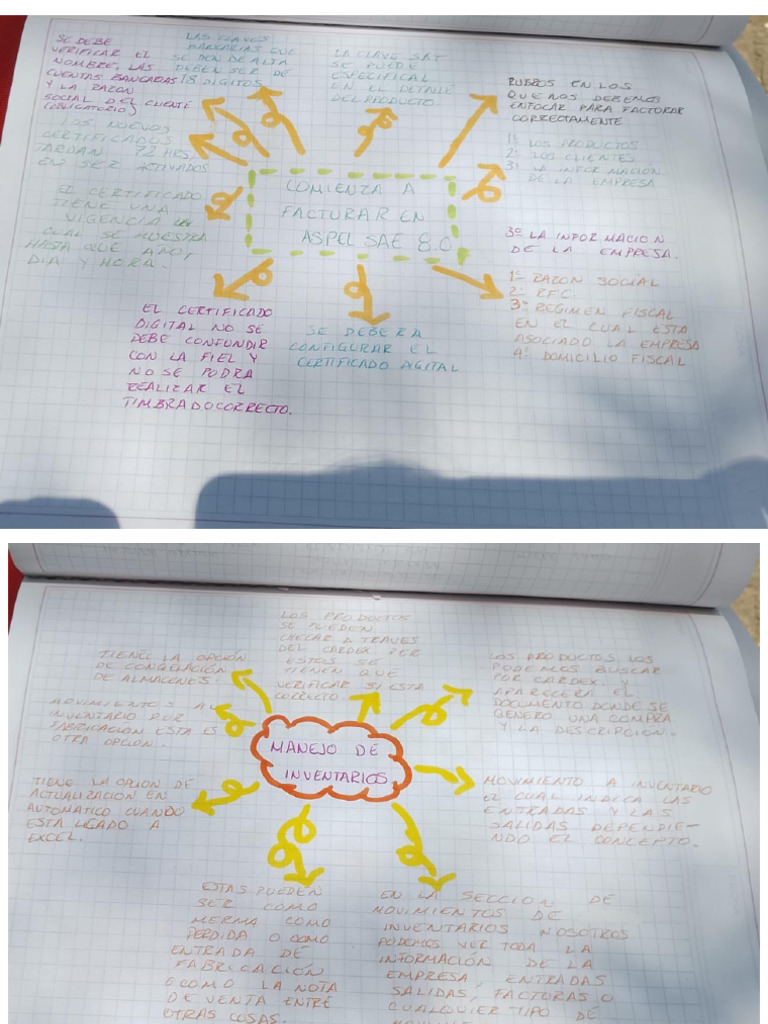 SE DEBE
VERIFICAR EL
NOMBRE, LAS
CUENTAS BANCARIAS
Y LA RAZON
SOCIAL DEL CLIENTE
(OBLIGATORIO)
LAS CLAVES
BANCARIAS QUE
SE DEN DE ALTA
DEBEN SER DE
18 DIGITOS
LA CLAVE SAT
SE PUEDE
ESPECIFICAR
EN EL DETALLE
DEL PRODUCTO
RUBROS EN LOS
QUE NOS DEBEMOS
ENFOCAR PARA FACTURAR
CORRECTAMENTE
1º LOS PRODUCTOS
2º LOS CLIENTES
3º LA INFORMACION
DE LA EMPRESA
LOS NUEVOS
CERTIFICADOS
TARDAN 72 HRS.
EN SER ACTIVADOS
EL CERTIFICADO
TIENE UNA
VIGENCIA LA
CUAL SE MUESTRA
HASTA QUE AÑO,
DIA Y HORA.
COMIENZA A
FACTURAR EN
ASPEL SAE 8.0
3º LA INFORMACION
DE LA EMPRESA.
1º RAZON SOCIAL
2º RFC
3º REGIMEN FISCAL
EN EL CUAL ESTA
ASOCIADO LA EMPRESA
4º DOMICILIO FISCAL
EL CERTIFICADO
DIGITAL NO SE
DEBE CONFUNDIR
CON LA FIEL Y
NO SE PODRA
REALIZAR EL
TIMBRADO CORRECTO.
SE DEBERA
CONFIGURAR EL
CERTIFICADO DIGITAL
LOS PRODUCTOS
SE PUEDEN
CHECAR A TRAVES
DEL CARDEX PER
ESTOS SE
TIENEN QUE
VERIFICAR SI ESTA
CORRECTO.
TIENE LA OPCIÓN
DE CONGELACIÓN
DE ALMACENES.
LOS PRODUCTOS, LOS
PODEMOS BUSCAR
POR CARDEX Y
APARECERA EL
DOCUMENTO DONDE SE
GENERO UNA COMPRA
Y LA DESCRIPCIÓN.
MOVIMIENTOS AL
INVENTARIO POR
FABRICACIÓN ESTA ES
OTRA OPCIÓN.
MANEJO DE
INVENTARIOS.
TIENE LA OPCION DE
ACTUALIZACION EN
AUTOMATICO CUANDO
ESTA LIGADO A
EXCEL.
MOVIMIENTO A INVENTARIO
EL CUAL INDICA LAS
ENTRADAS Y LAS
SALIDAS DEPENDIE-
NDO EL CONCEPTO.
ESTAS PUEDEN
SER COMO
MERMA COMO
PERDIDA O COMO
ENTRADA DE
FABRICACIÓN
O COMO LA NOTA
DE VENTA ENTRE
OTRAS COSAS.
EN LA SECCION DE
MOVIMIENTOS DE
INVENTARIOS NOSOTROS
PODEMOS VER TODA LA
INFORMACIÓN DE LA
EMPRESA, ENTRADAS
SALIDAS, FACTURAS O
CUALQUIER TIPO DE